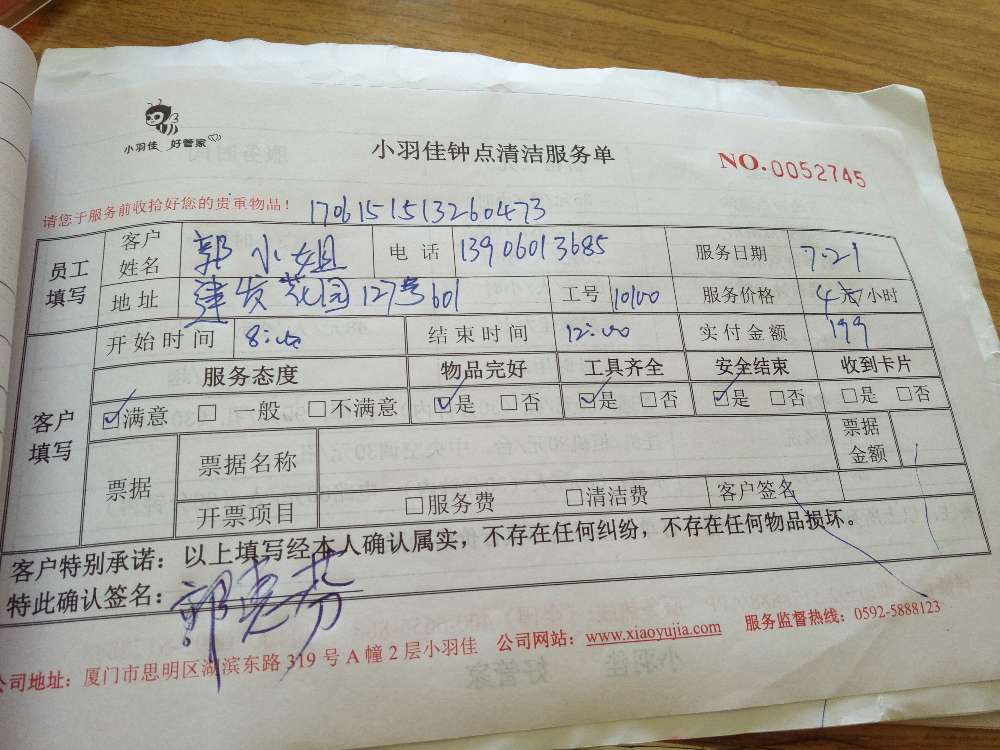 小羽佳 好管家
小羽佳钟点清洁服务单
NO.0052745
请您于服务前收拾好您的贵重物品！ 1706151513260473
员工填写 客户姓名 郭小姐 电话 13906013685 服务日期 7.21
地址 建发花园127号601 工号 10100 服务价格 4 元/小时
客户填写 开始时间 8:00 结束时间 12:00 实付金额 199
服务态度 物品完好 工具齐全 安全结束 收到卡片
☑满意 □一般 □不满意 ☑是 □否 ☑是 □否 ☑是 □否 □是 □否
票据 票据名称 票据金额
开票项目 □服务费 □清洁费 客户签名
客户特别承诺：以上填写经本人确认属实，不存在任何纠纷，不存在任何物品损坏。
特此确认签名：郭
公司地址：厦门市思明区湖滨东路319号A幢2层小羽佳 公司网站：www.xiaoyujia.com 服务监督热线：0592-5888123
小羽佳 好管家